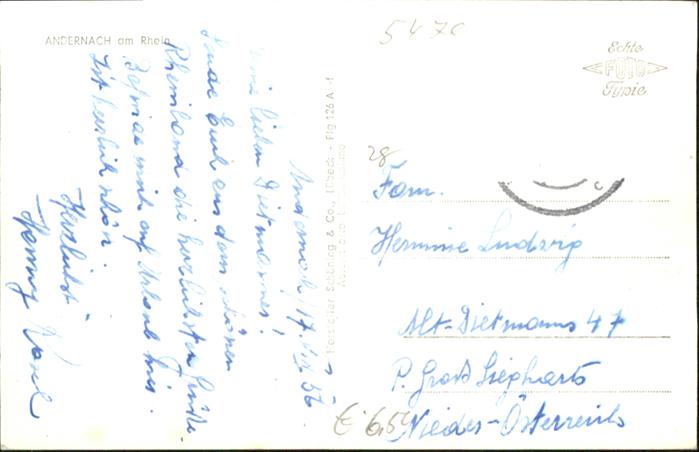 ANDERNACH am Rhein
5476
Echte
FOTO
Typie
Andernach, 17. VIII. 56.
Meine lieben Dietmannser!
Sende Euch aus dem schönen
Rheinland die herzlichsten Grüße.
Befinde mich auf Urlaub hier.
Ist herrlich schön.
Herzlichst
Hersteller Schöning & Co., Lübeck - Flg 126 A -1
28
Fam.
Hermine Ludwig
Alt-Dietmanns 47
P. Groß Siegharts
Nieder-Österreich
€ 6,54